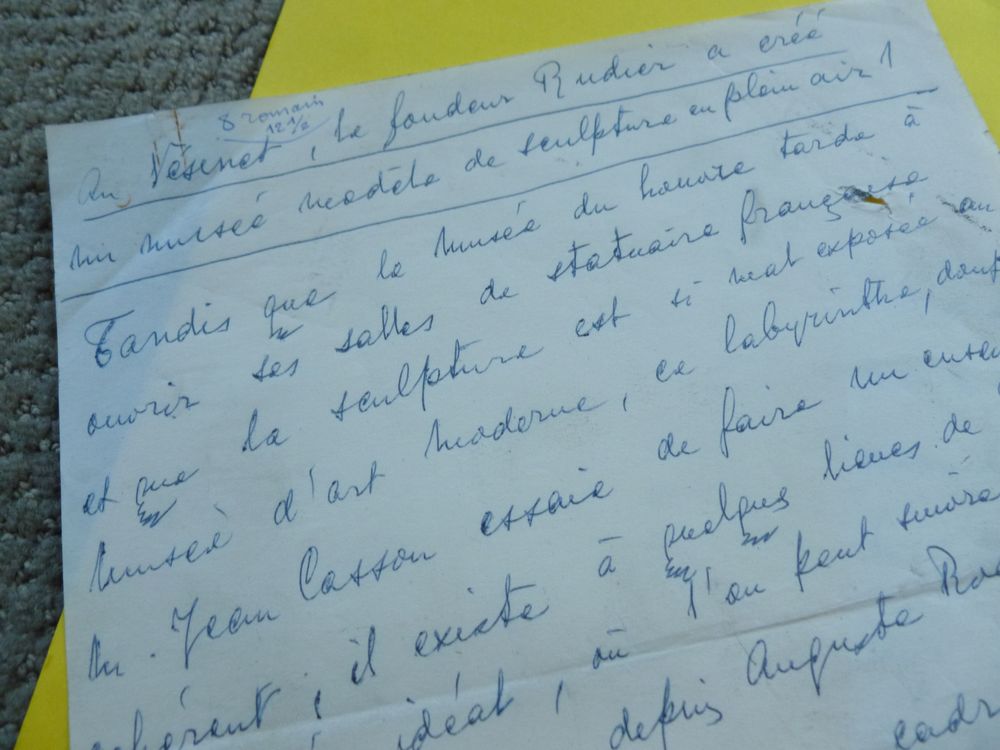 8 romain
12 1/2
Au Vésinet, le fondeur Rudier a créé
un musée modèle de sculpture en plein air !
Tandis que le musée du Louvre tarde à
ouvrir ses salles de statuaire française
et que la sculpture est si mal exposée au
Musée d'art moderne, ce labyrinthe, dont
M. Jean Cassou essaie de faire un ensem
cohérent, il existe à quelques lieues de
idéal, où l'on peut suivre
depuis Auguste Ro
cadr